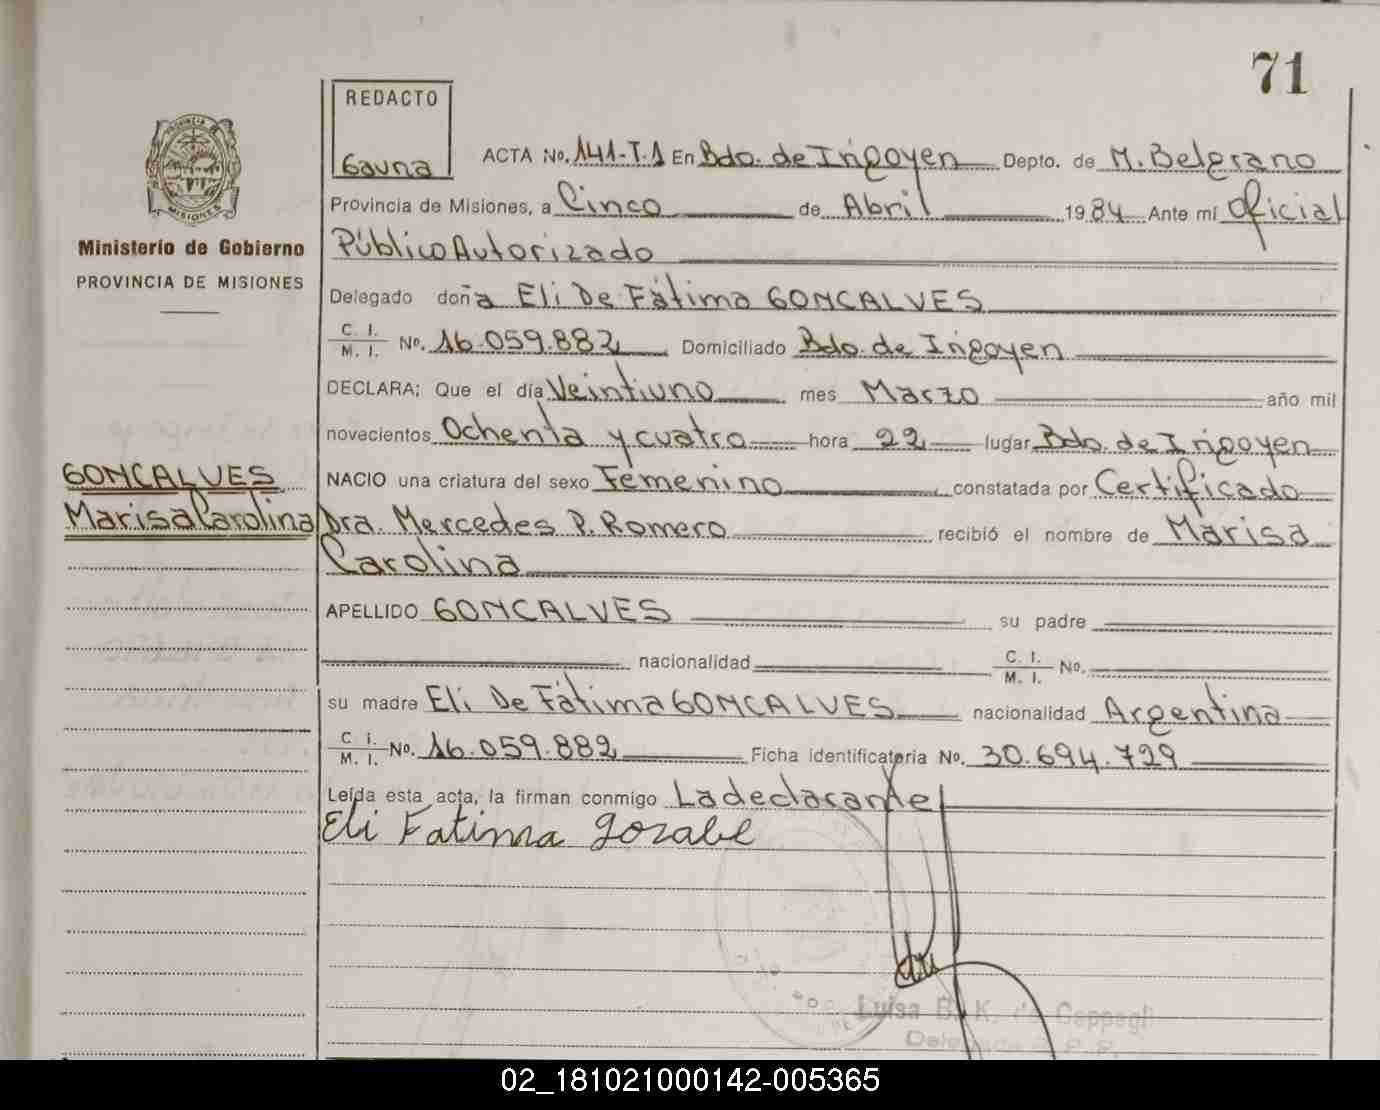 71
REDACTO
Gauna
PROVINCIA
MISIONES
Ministerio de Gobierno
PROVINCIA DE MISIONES
ACTA No. 141-T.1 En Bdo. de Irigoyen Depto. de M. Belgrano
Provincia de Misiones, a Cinco de Abril 1984 Ante mí Oficial
Público Autorizado
Delegado doña Eli De Fátima GONCALVES
C. I. M. I. No. 16.059.882 Domiciliado Bdo. de Irigoyen
DECLARA: Que el día Veintiuno mes Marzo año mil
novecientos Ochenta y cuatro hora 22 lugar Bdo. de Irigoyen
GONCALVES
Marisa Carolina
NACIO una criatura del sexo Femenino constatada por Certificado
Dra. Mercedes P. Romero recibió el nombre de Marisa
Carolina
APELLIDO GONCALVES su padre
nacionalidad C. I. M. I. No.
su madre Eli De Fátima GONCALVES nacionalidad Argentina
C. I. M. I. No. 16.059.882 Ficha identificatoria No. 30.694.729
Leída esta acta, la firman conmigo La declarante
Eli Fatima
Luisa B. K. de
02_181021000142-005365